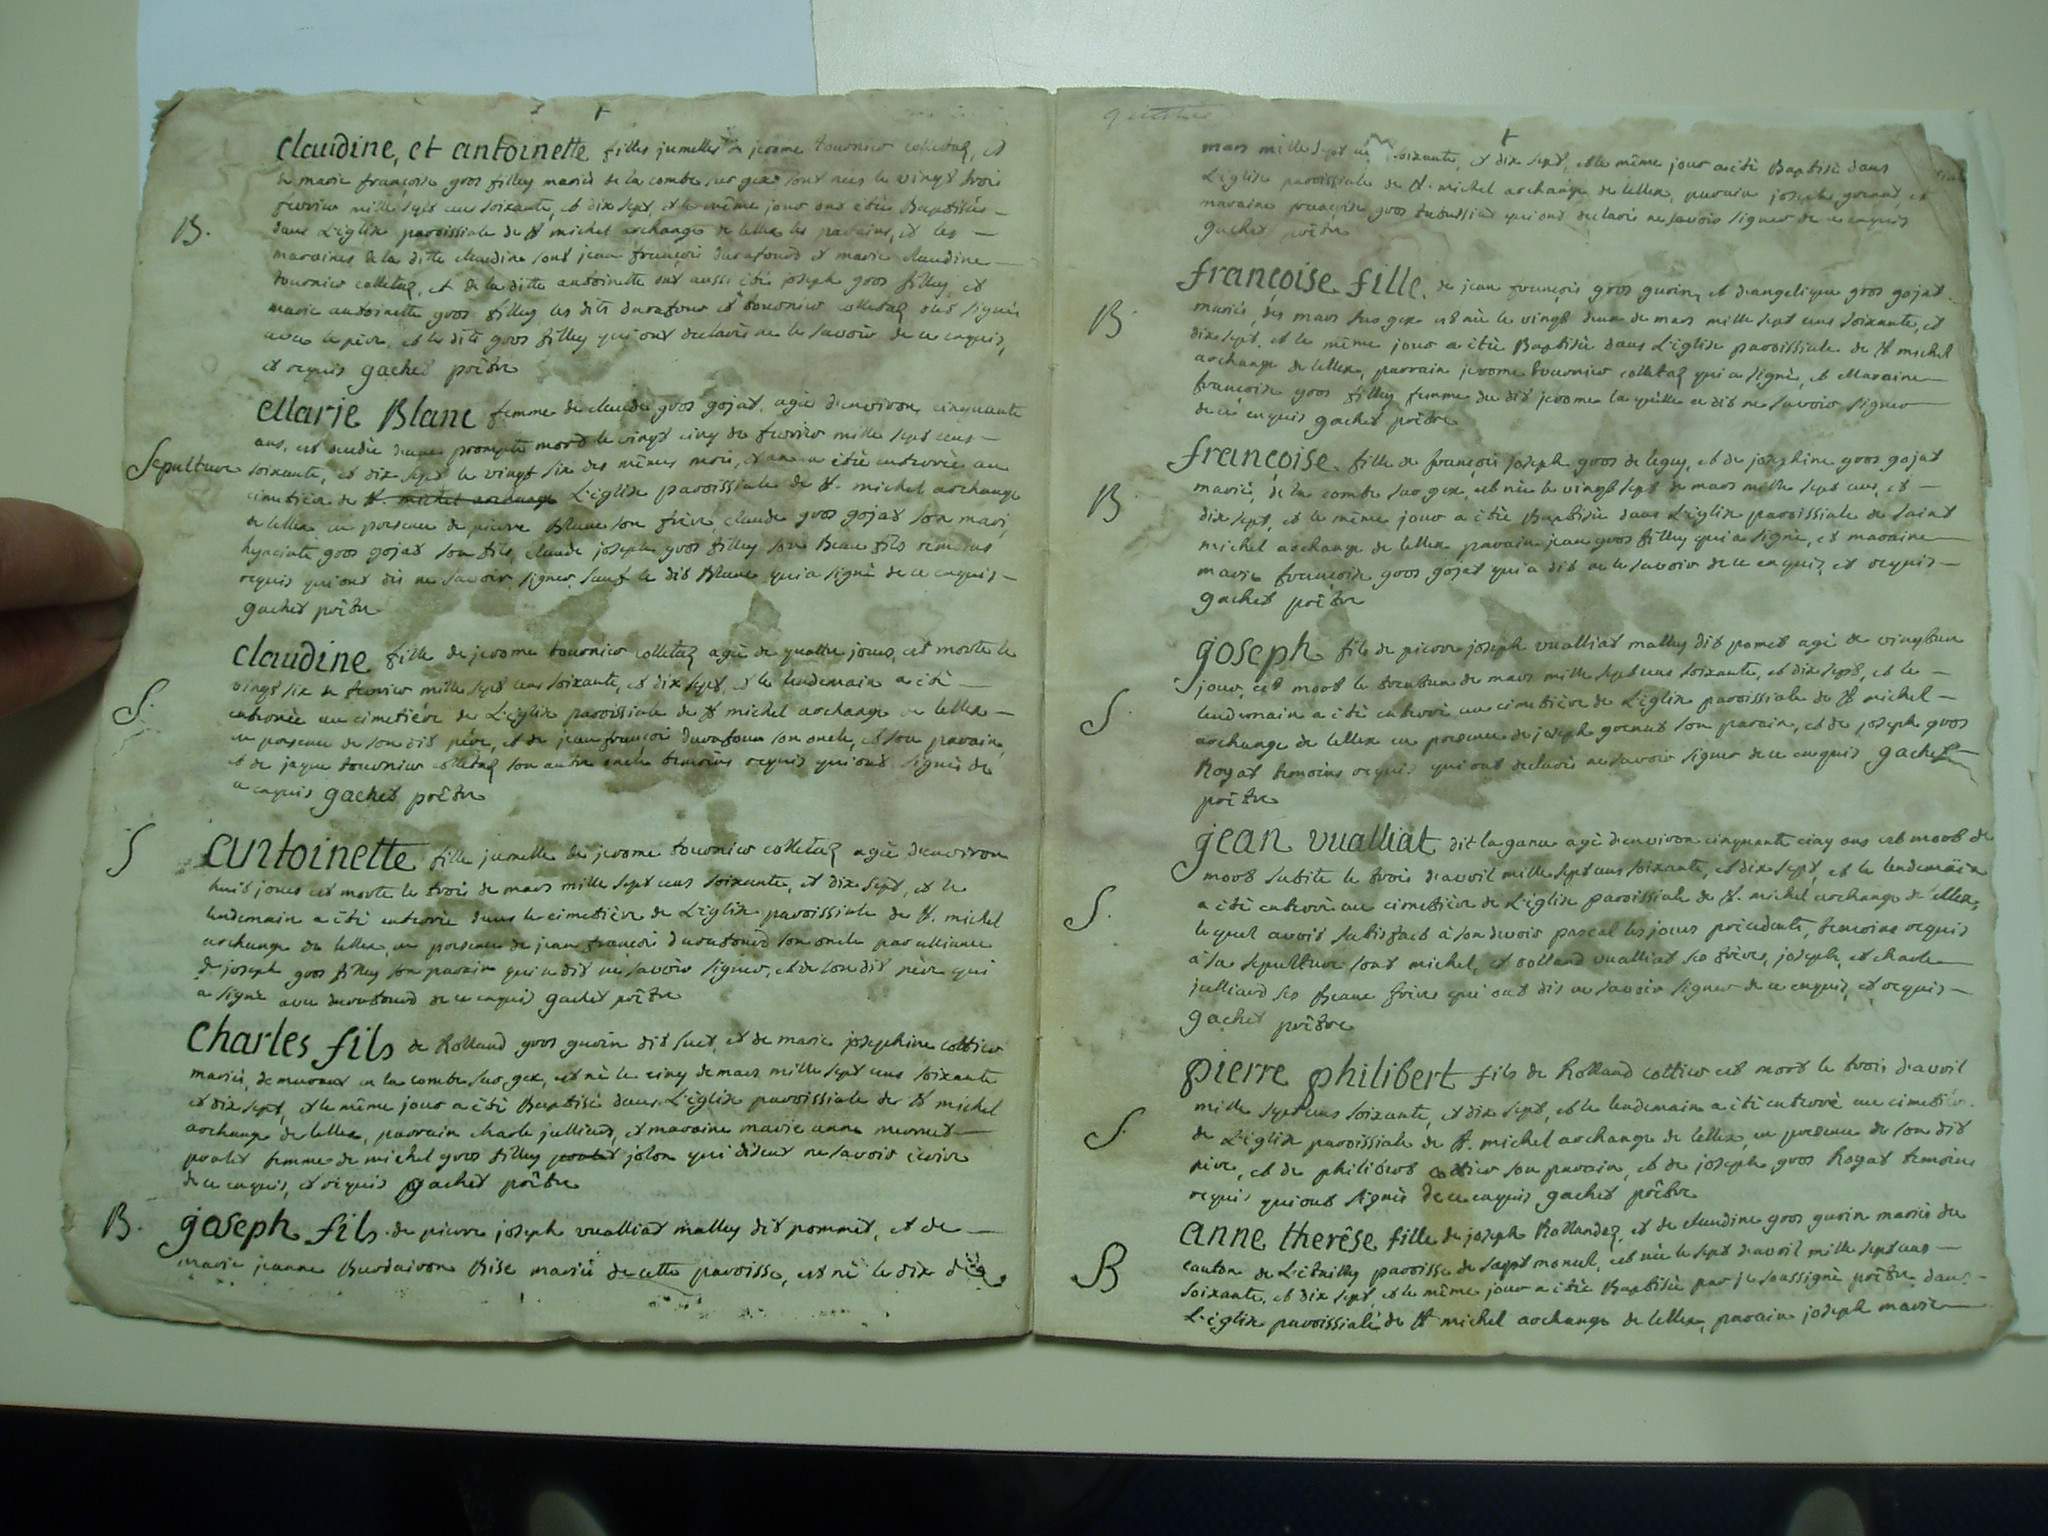 claudine, et antoinette filles jumelles de jerome tournier colletaz, et
de marie françoise gros filley mariés de la combe sur gex sont nees le vingt trois
fevrier mille sept cens soixante, et dix sept, et le même jour ont étés Baptisées
B.
dans L'église paroissiale de St michel archange de lellex les parains, et les
maraines de la ditte claudine sont jean françois durafourd et marie claudine
tournier colletaz, et de la ditte antoinette ont aussi été joseph gros filley, et
marie antoinette gros filley les dits durafour et tournier colletaz ont signés
avec le père, et les dits gros filley qui ont declarés ne le savoir de ce enquis,
et requis gachet prêtre
Marie Blanc femme de claude gros gojat, agée d'environ cinquante
ans, est decedée d'une prompte mort le vingt cinq de fevrier mille sept cens
Sepulture
soixante, et dix sept le vingt six des mêmes mois, et an a étée enterrée au
cimetière de St. michel archange L'église paroissiale de St. michel archange
de lellex en presence de pierre Blanc son frère claude gros gojat son mari,
hyacinte gros gojat son fils, claude joseph gros filley son Beau fils temoins
requis qui ont dis ne savoir signer, sauf le dit Blanc qui a signé de ce enquis
gachet prêtre
claudine fille de jerome tournier colletaz agée de quattre jours, est morte le
vingt six de fevrier mille sept cens soixante, et dix sept, et le lendemain a été
S.
enterrée au cimetiére de L'église paroissiale de St michel archange de lellex
en presence de son dit père, et de jean françois durafour son oncle, et son parain,
et de jaque tournier colletaz son autre oncle temoins requis qui ont signés de
ce enquis gachet prêtre
S
antoinette fille jumelle de jerome tournier colletaz agée d'environ
huit jours est morte le trois de mars mille sept cens soixante, et dix sept, et le
lendemain a été enterrée dans le cimetière de L'église paroissiale de St. michel
archange de lellex, en presence de jean françois durafourd son oncle par alliance
de joseph gros filley son parain qui a dit ne savoir signer, et de son dit père qui
a signé avec durafourd de ce enquis gachet prêtre
charles fils de Rolland gros gurin dit suet, et de marie josephine cottier
mariés, de mernet en la combe sur gex, est né le cinq de mars mille sept cens soixante
et dix sept, et le même jour a été Baptisé dans L'église paroissiale de St michel
archange de lellex, parrain charle julliard, et maraine marie anne mermet
poulet femme de michel gros filley poulet jolon qui disent ne savoir écrire
de ce enquis, et requis gachet prêtre
B.
joseph fils de pierre joseph vualliat malley dit pommet, et de
marie jeanne Burdairon Bise mariés de cette paroisse, est né le dix de
mars mille sept cens soixante, et dix sept, et le même jour a été Baptisé dans
L'église paroissiale de St. michel archange de lellex, parain joseph grenat, et
maraine françoise gros tabussiat qui ont declarés ne savoir signer de ce enquis
gachet prêtre
françoise fille de jean françois gros gurin, et d'angelique gros gojat
B.
mariés, des mars sur gex est née le vingt deux de mars mille sept cens soixante, et
dix sept, et le même jour a été Baptisée dans L'église paroissiale de St michel
archange de lellex, parrain jerome tournier colletaz qui a signé, et Maraine
françoise gros filley femme du dit jerome la quelle a dit ne savoir signer
de ce enquis gachet prêtre
françoise fille de françois joseph gros de leguy, et de josephine gros gojat
B
mariés, de la combe sur gex, est née le vingt sept de mars mille sept cens, et
dix sept, et le même jour a été Baptisée dans L'église paroissiale de saint
michel archange de lellex parain jean gros filley qui a signé, et maraine
marie françoise gros gojat qui a dit ne le savoir de ce enquis, et requis
gachet prêtre
joseph fils de pierre joseph vualliat malley dit pomet agé de vingtun
jour, est mort le trentun de mars mille sept cens soixante, et dix sept, et le
S.
lendemain a été enterré au cimetière de L'église paroissiale de St michel
archange de lellex en presence de joseph grenat son parain, et de joseph gros
Royat temoins requis qui ont declarés ne savoir signer de ce enquis gachet
prêtre
jean vualliat dit la ganne agé d'environ cinquante cinq ans est mort de
mort subite le trois d'avril mille sept cens soixante, et dix sept, et le lendemain
S.
a été enterré au cimetière de L'église paroissiale de St. michel archange de lellex,
le quel avoit satisfait à son devoir pascal les jours precedents, temoins requis
à sa sepulture sont michel, et rolland vualliat ses frères, joseph, et charle
julliard ses Beaux frères qui ont dis ne savoir signer de ce enquis, et requis
gachet prêtre
pierre philibert fils de Rolland cottier est mort le trois d'avril
mille sept cens soixante, et dix sept, et le lendemain a été enterré au cimetière
S.
de L'église paroissiale de St. michel archange de lellex, en presence de son dit
père, et de philibert cottier son parain, et de joseph gros Royat temoins
requis qui ont signés de ce enquis gachet prêtre
anne therêse fille de joseph Rollandez, et de claudine gros gurin mariés du
B
canton de paroisse de sept moncel, est née le sept d'avril mille sept cens
soixante, et dix sept et le même jour a été Baptisée par je soussigné prêtre dans
L'église paroissiale de St michel archange de lellex, parain joseph marie